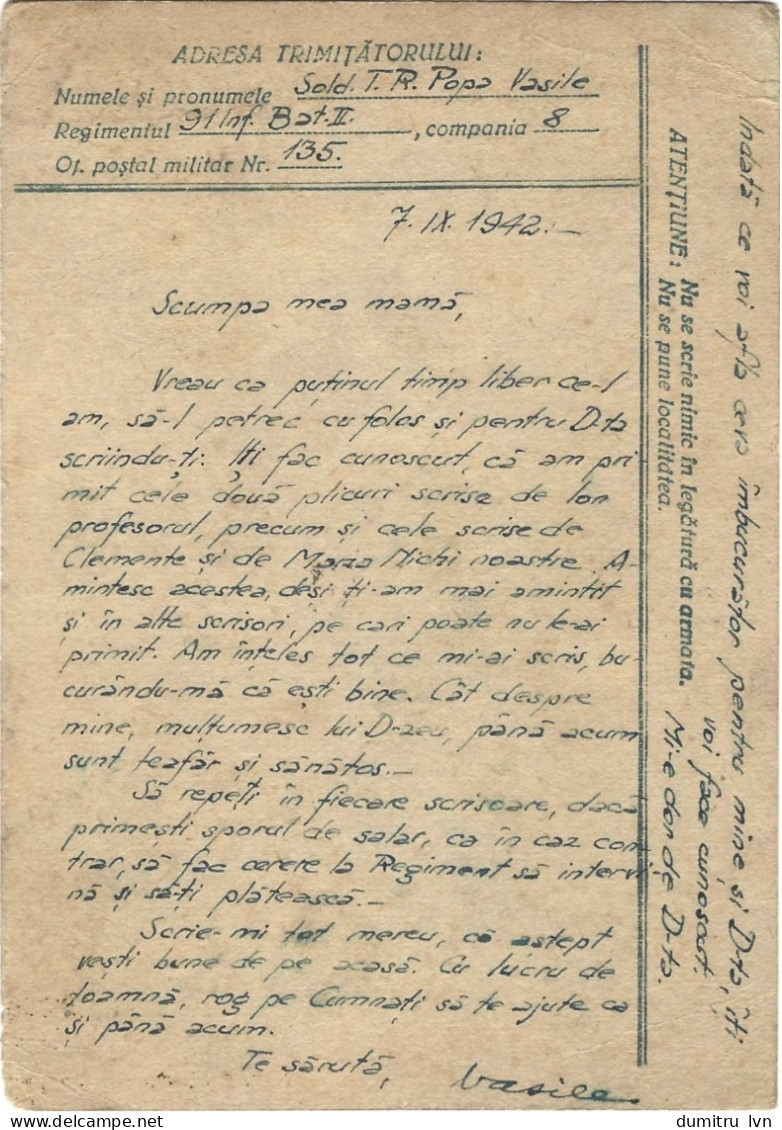 ADRESA TRIMIȚĂTORULUI:
Numele și pronumele Sold. T.R. Popa Vasile
Regimentul 91 Inf. Bat. II. , compania 8
Of. poștal militar Nr. 135.
7.IX.1942.–
Scumpa mea mamă,
Vreau ca puținul timp liber ce-l
am, să-l petrec cu folos și pentru D-ta
scriindu-ți. Îți fac cunoscut, că am pri-
mit cele două plicuri scrise de Ion
profesorul, precum și cele scrise de
Clemente și de Maria Nichi noastre. A-
mintesc acestea, deși ți-am mai amintit
și în alte scrisori, pe cari poate nu le-ai
primit. Am înțeles tot ce mi-ai scris, bu-
curându-mă că ești bine. Cât despre
mine, mulțumesc lui D-zeu, până acum
sunt teafăr și sănătos.–
Să repeți în fiecare scrisoare, dacă
primești sporul de salar, ca în caz con-
trar, să fac cerere la Regiment să intervi-
nă și să-ți plătească.–
Scrie-mi tot mereu, că aștept
vești bune de pe acasă. Cu lucru de
toamnă, rog pe Cumnați să te ajute ca
și până acum.
Te sărută,
Vasile
ATENȚIUNE: Nu se scrie nimic în legătură cu armata.
Nu se pune localitatea.
Îndată ce voi afla ceva îmbucurător pentru mine și D-ta, îți
voi face cunoscut.
Mi-e dor de D-ta.
dumitru lvn